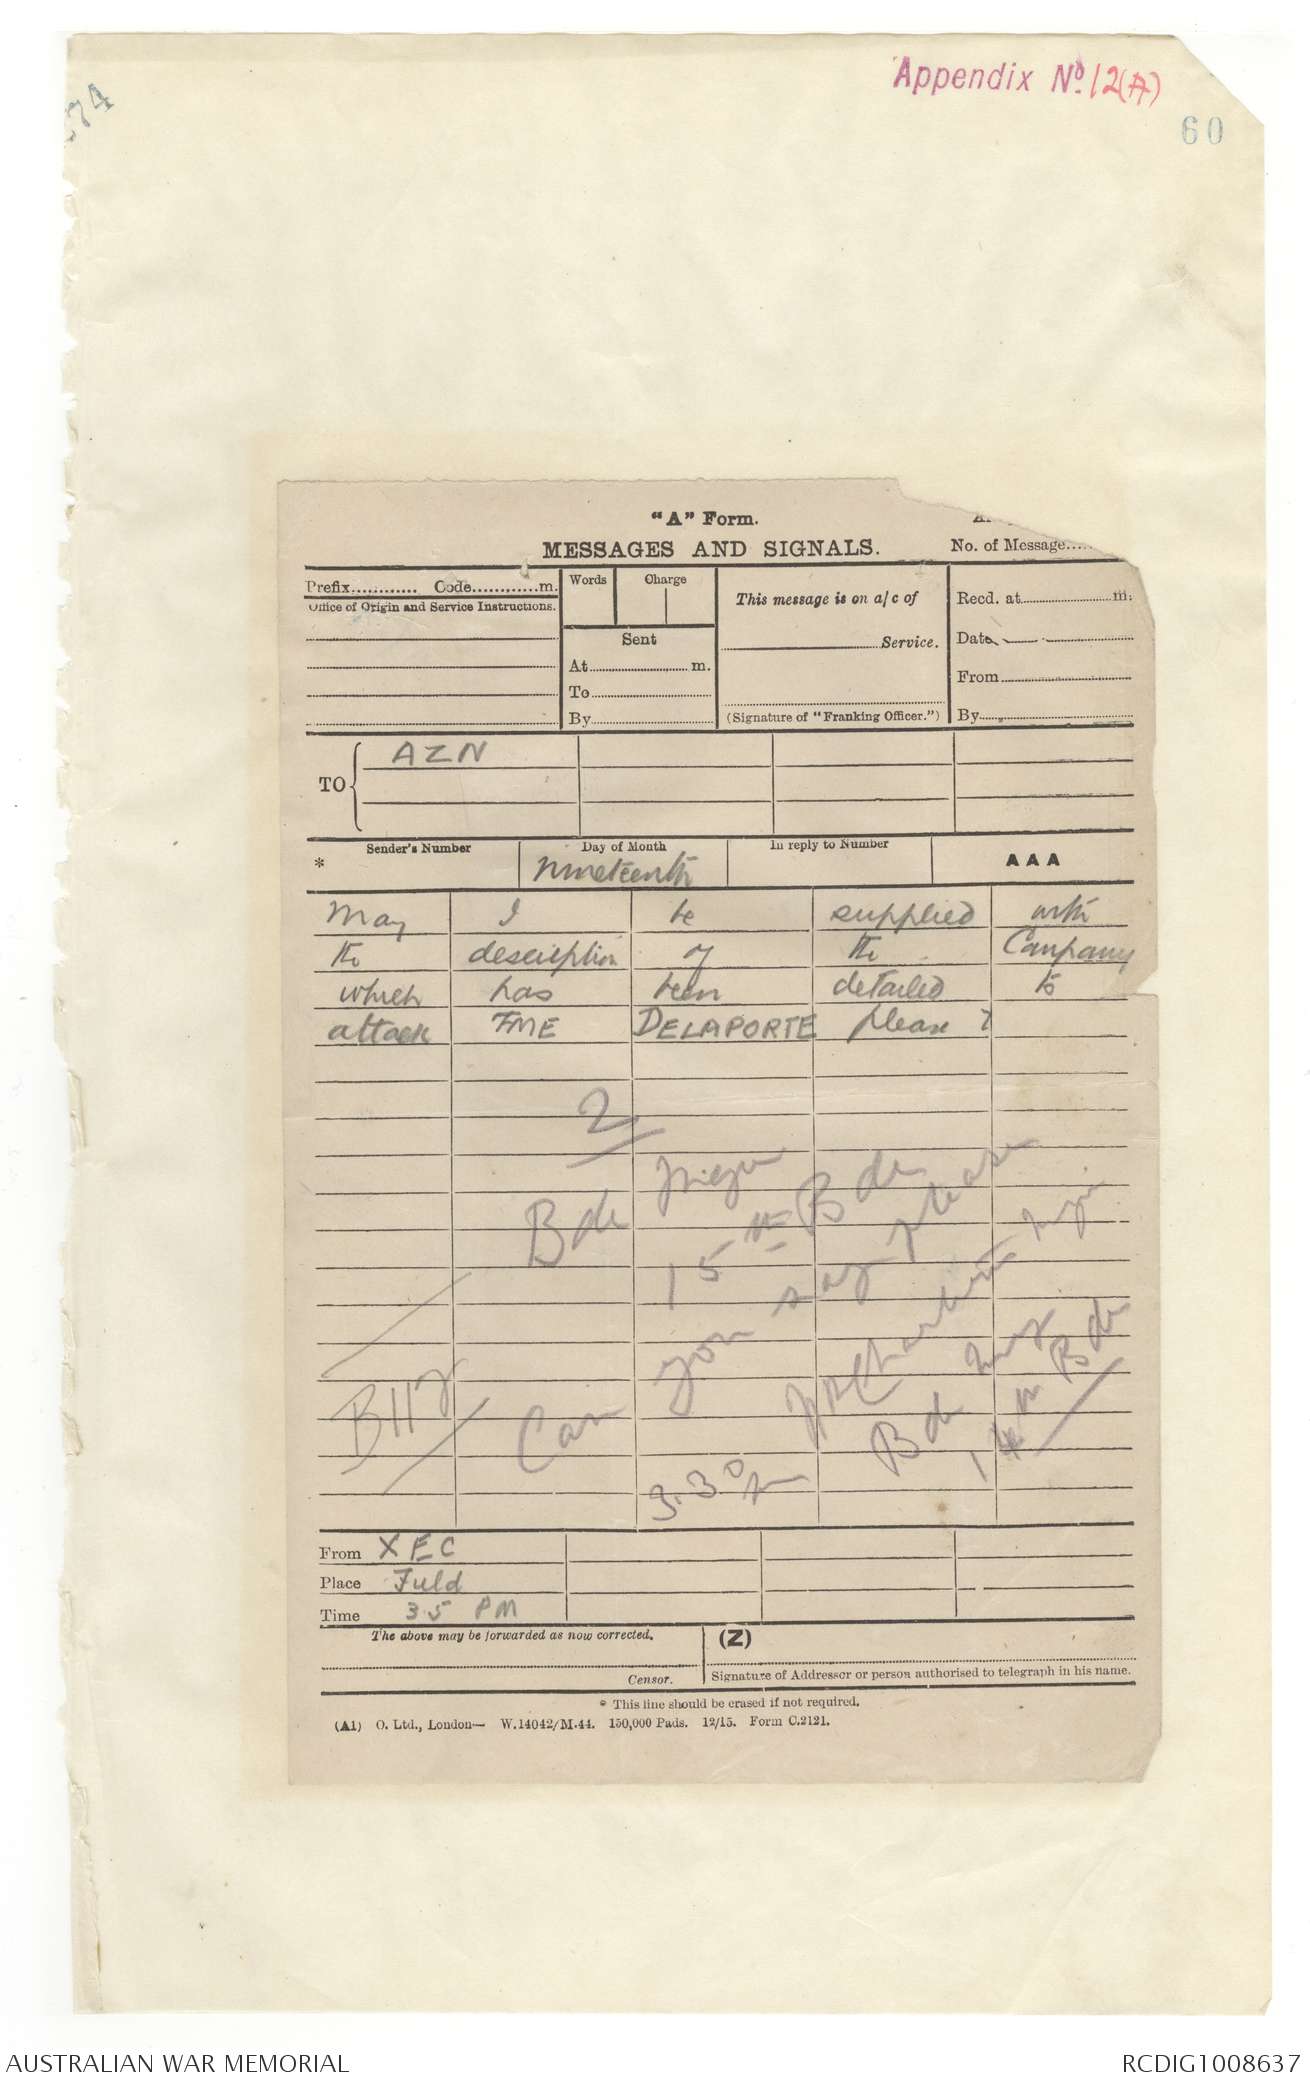 Appendix No. 12(A)
74
60
"A" Form.
MESSAGES AND SIGNALS.
No. of Message.....
Prefix............ Code............m.
Office of Origin and Service Instructions.
Words
Charge
Sent
At....................m.
To
By
This message is on a/c of
Service.
(Signature of "Franking Officer.")
Recd. at....................m.
Date
From
By
TO
AZN
Sender's Number
Day of Month
In reply to Number
*
nineteenth
AAA
May I be supplied with
the description of the Company
which has been detailed to
attack FME DELAPORTE please ?
2
Bde Major
15th Bde
Can you say please
Major
Bde Major
14th Bde
3.30 pm
From XEC
Place Fuld
Time 3 5 PM
The above may be forwarded as now corrected.
(Z)
Censor.
Signature of Addressor or person authorised to telegraph in his name.
* This line should be erased if not required.
(A1) O. Ltd., London— W.14042/M.44. 150,000 Pads. 12/15. Form C.2121.
AUSTRALIAN WAR MEMORIAL
RCDIG1008637